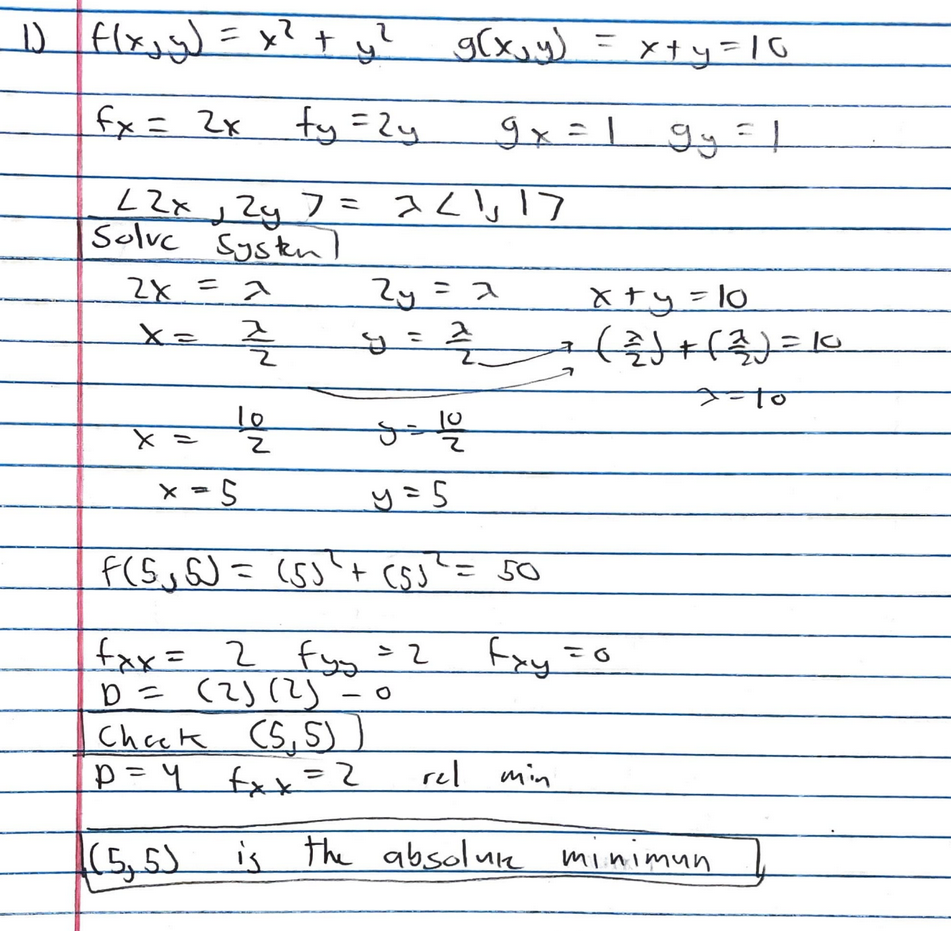 1) f(x,y) = x² + y² g(x,y) = x+y=10
fx = 2x fy = 2y gx = 1 gy = 1
<2x, 2y> = λ<1, 1>
Solve System
2x = λ 2y = λ x+y=10
x = λ/2 y = λ/2 (λ/2)+(λ/2)=10
λ=10
x = 10/2 y = 10/2
x = 5 y = 5
f(5,5) = (5)²+(5)² = 50
fxx = 2 fyy = 2 fxy = 0
D = (2)(2) - 0
Check (5,5)
D = 4 fxx = 2 rel min
(5,5) is the absolute minimum